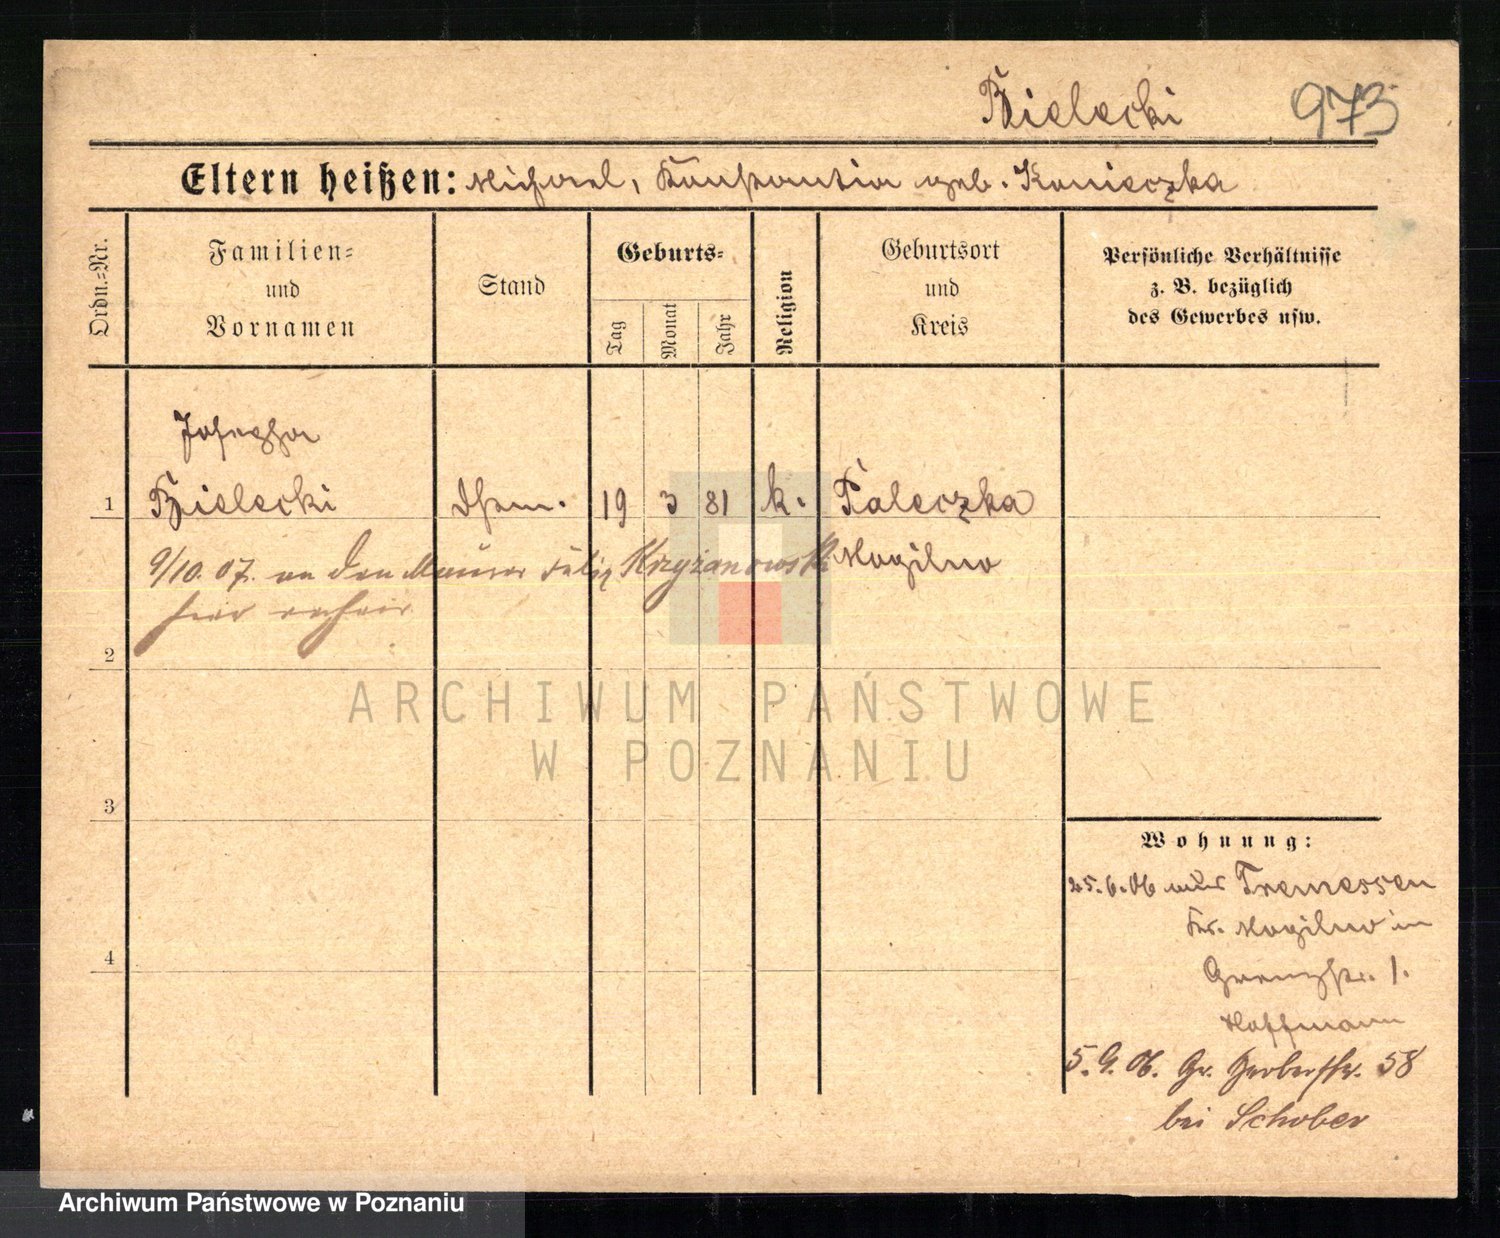 Bielecki 973
Eltern heißen: Michael, Konstantia geb. Konieczka
Ordn.-Nr.
Familien-
und
Vornamen
Stand
Geburts-
Tag
Monat
Jahr
Religion
Geburtsort
und
Kreis
Persönliche Verhältnisse
z. B. bezüglich
des Gewerbes usw.
Josepha
1 Bielecki 19 3 81 k. Paleczka
9/10. 07. an den Maurer Felix Krzyżanowski Mogilno
hier
2
3
4
Wohnung:
25.6.06 aus Tremessen
Kr. Mogilno in
Grenzstr. 1.
Hoffmann
5.9.06. Gr. Gerberstr. 58
bei Schober
ARCHIWUM PAŃSTWOWE
W POZNANIU
Archiwum Państwowe w Poznaniu